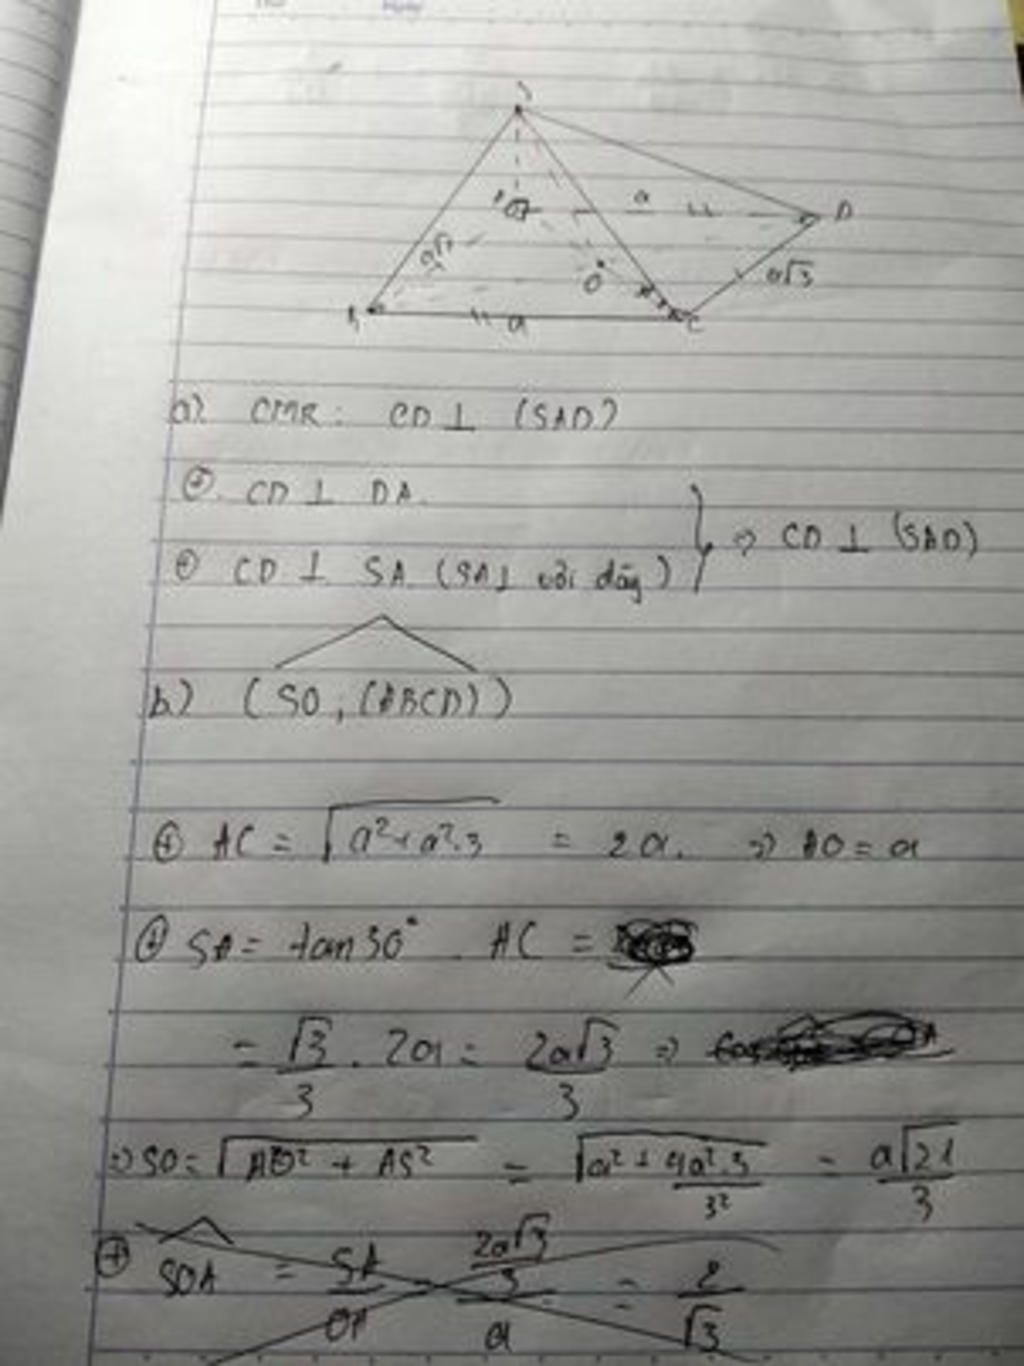 S
a
D
a√3
O
a
C
a). CMR: CD ⊥ (SAD)
⊕. CD ⊥ DA.
⊕ CD ⊥ SA (SA ⊥ với đáy) } ⇒ CD ⊥ (SAD)
b) (SO, (ABCD))
⊕ AC = √(a² + a².3) = 2a. ⇒ AO = a
⊕ SA = tan30°. AC =
= √3/3 . 2a = 2a√3/3 ⇒
⇒ SO = √(AO² + AS²) = √(a² + 4a².3/3²) = a√21/3
⊕ SOA = SA/OA = (2a√3/3)/a = 2/√3